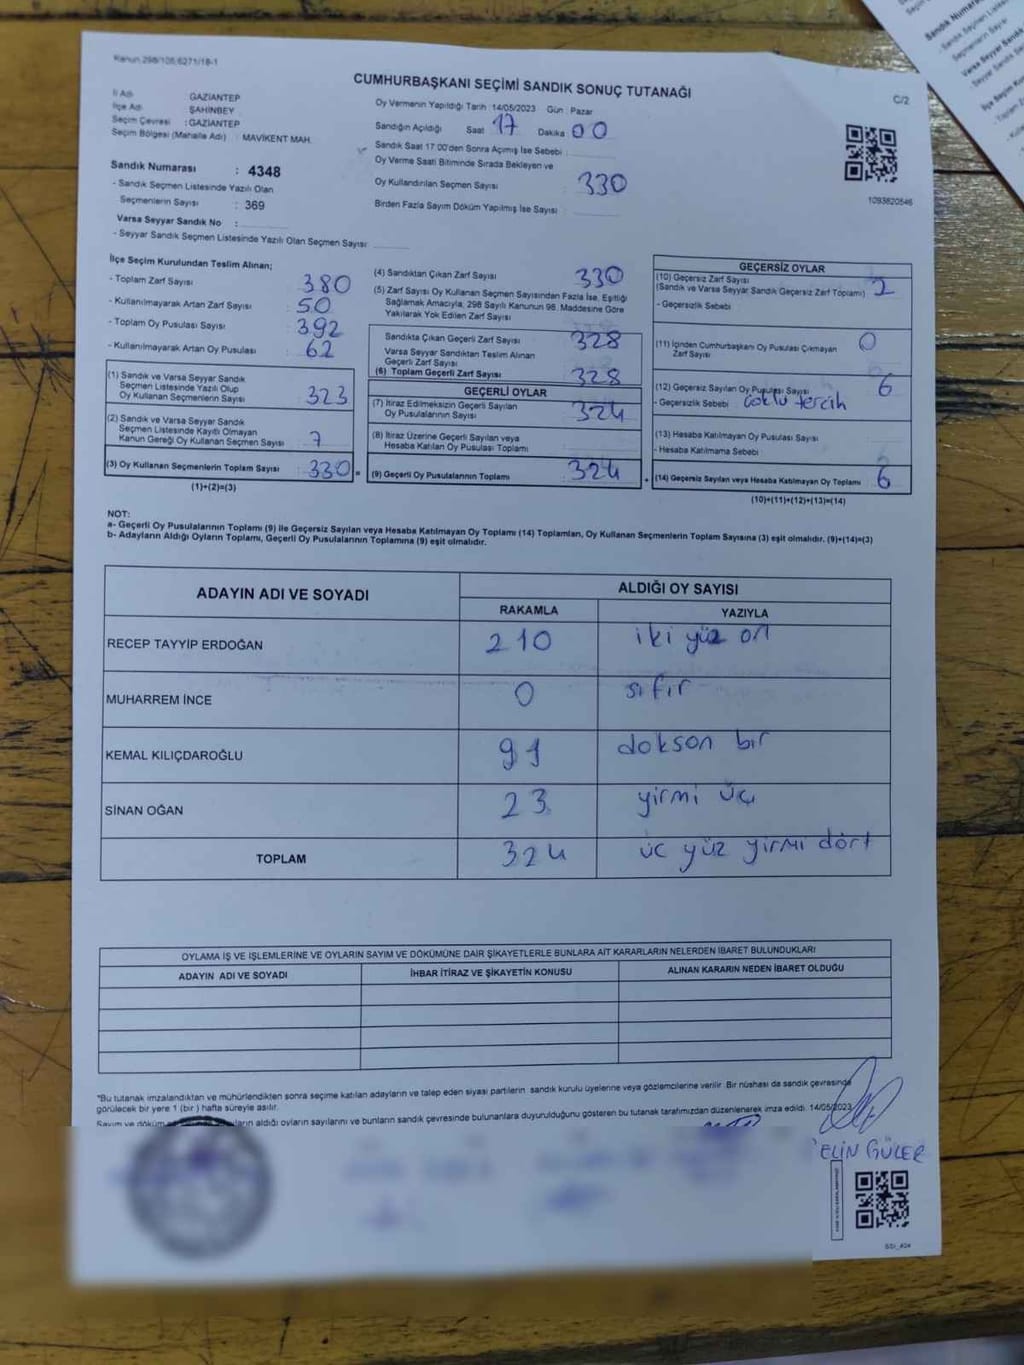 Kanun 298/105,6271/18-1
CUMHURBAŞKANI SEÇİMİ SANDIK SONUÇ TUTANAĞI
C/2
İl Adı GAZİANTEP
İlçe Adı ŞAHİNBEY
Seçim Çevresi : GAZİANTEP
Seçim Bölgesi (Mahalle Adı) : MAVİKENT MAH.
Oy Vermenin Yapıldığı Tarih :14/05/2023 Gün : Pazar
Sandığın Açıldığı Saat 17 Dakika 00
Sandık Saat 17:00'den Sonra Açılmış İse Sebebi :
Oy Verme Saati Bitiminde Sırada Bekleyen ve
Oy Kullandırılan Seçmen Sayısı : 330
Birden Fazla Sayım Döküm Yapılmış İse Sayısı :
1093820546
Sandık Numarası : 4348
- Sandık Seçmen Listesinde Yazılı Olan
Seçmenlerin Sayısı : 369
Varsa Seyyar Sandık No :
- Seyyar Sandık Seçmen Listesinde Yazılı Olan Seçmen Sayısı:
İlçe Seçim Kurulundan Teslim Alınan;
- Toplam Zarf Sayısı : 380
- Kullanılmayarak Artan Zarf Sayısı : 50
- Toplam Oy Pusulası Sayısı : 392
- Kullanılmayarak Artan Oy Pusulası : 62
(1) Sandık ve Varsa Seyyar Sandık
Seçmen Listesinde Yazılı Olup
Oy Kullanan Seçmenlerin Sayısı : 323
(2) Sandık ve Varsa Seyyar Sandık
Seçmen Listesinde Kayıtlı Olmayan
Kanun Gereği Oy Kullanan Seçmen Sayısı : 7
(3) Oy Kullanan Seçmenlerin Toplam Sayısı : 330 =
(1)+(2)=(3)
(4) Sandıktan Çıkan Zarf Sayısı : 330
(5) Zarf Sayısı Oy Kullanan Seçmen Sayısından Fazla İse, Eşitliği
Sağlamak Amacıyla, 298 Sayılı Kanunun 98. Maddesine Göre
Yakılarak Yok Edilen Zarf Sayısı
Sandıkta Çıkan Geçerli Zarf Sayısı : 328
Varsa Seyyar Sandıktan Teslim Alınan
Geçerli Zarf Sayısı
(6) Toplam Geçerli Zarf Sayısı : 328
GEÇERLİ OYLAR
(7) İtiraz Edilmeksizin Geçerli Sayılan
Oy Pusulalarının Sayısı : 324
(8) İtiraz Üzerine Geçerli Sayılan veya
Hesaba Katılan Oy Pusulaları Toplamı
(9) Geçerli Oy Pusulalarının Toplamı : 324
GEÇERSİZ OYLAR
(10) Geçersiz Zarf Sayısı
(Sandık ve Varsa Seyyar Sandık Geçersiz Zarf Toplamı) : 2
- Geçersizlik Sebebi
(11) İçinden Cumhurbaşkanı Oy Pusulası Çıkmayan
Zarf Sayısı : 0
(12) Geçersiz Sayılan Oy Pusulası Sayısı : 6
- Geçersizlik Sebebi çoklu tercih
(13) Hesaba Katılmayan Oy Pusulası Sayısı
- Hesaba Katılmama Sebebi
(14) Geçersiz Sayılan veya Hesaba Katılmayan Oy Toplamı : 6
(10)+(11)+(12)+(13)=(14)
NOT:
a- Geçerli Oy Pusulalarının Toplamı (9) ile Geçersiz Sayılan veya Hesaba Katılmayan Oy Toplamı (14) Toplamları, Oy Kullanan Seçmenlerin Toplam Sayısına (3) eşit olmalıdır. (9)+(14)=(3)
b- Adayların Aldığı Oyların Toplamı, Geçerli Oy Pusulalarının Toplamına (9) eşit olmalıdır.
ADAYIN ADI VE SOYADI ALDIĞI OY SAYISI
RAKAMLA YAZIYLA
RECEP TAYYİP ERDOĞAN 210 iki yüz on
MUHARREM İNCE 0 sıfır
KEMAL KILIÇDAROĞLU 91 dokson bir
SİNAN OĞAN 23 yirmi üç
TOPLAM 324 üc yüz yirmi dört
OYLAMA İŞ VE İŞLEMLERİNE VE OYLARIN SAYIM VE DÖKÜMÜNE DAİR ŞİKAYETLERLE BUNLARA AİT KARARLARIN NELERDEN İBARET BULUNDUKLARI
ADAYIN ADI VE SOYADI İHBAR İTİRAZ VE ŞİKAYETİN KONUSU ALINAN KARARIN NEDEN İBARET OLDUĞU
*Bu tutanak imzalandıktan ve mühürlendikten sonra seçime katılan adayların ve talep eden siyasi partilerin sandık kurulu üyelerine veya gözlemcilerine verilir. Bir nüshası da sandık çevresinde
görülecek bir yere 1 (bir) hafta süreyle asılır.
Sayım ve döküm aldığı oyların sayılarını ve bunların sandık çevresinde bulunanlara duyurulduğunu gösteren bu tutanak tarafımızdan düzenlenerek imza edildi. 14/05/2023
ELİN GÜLER